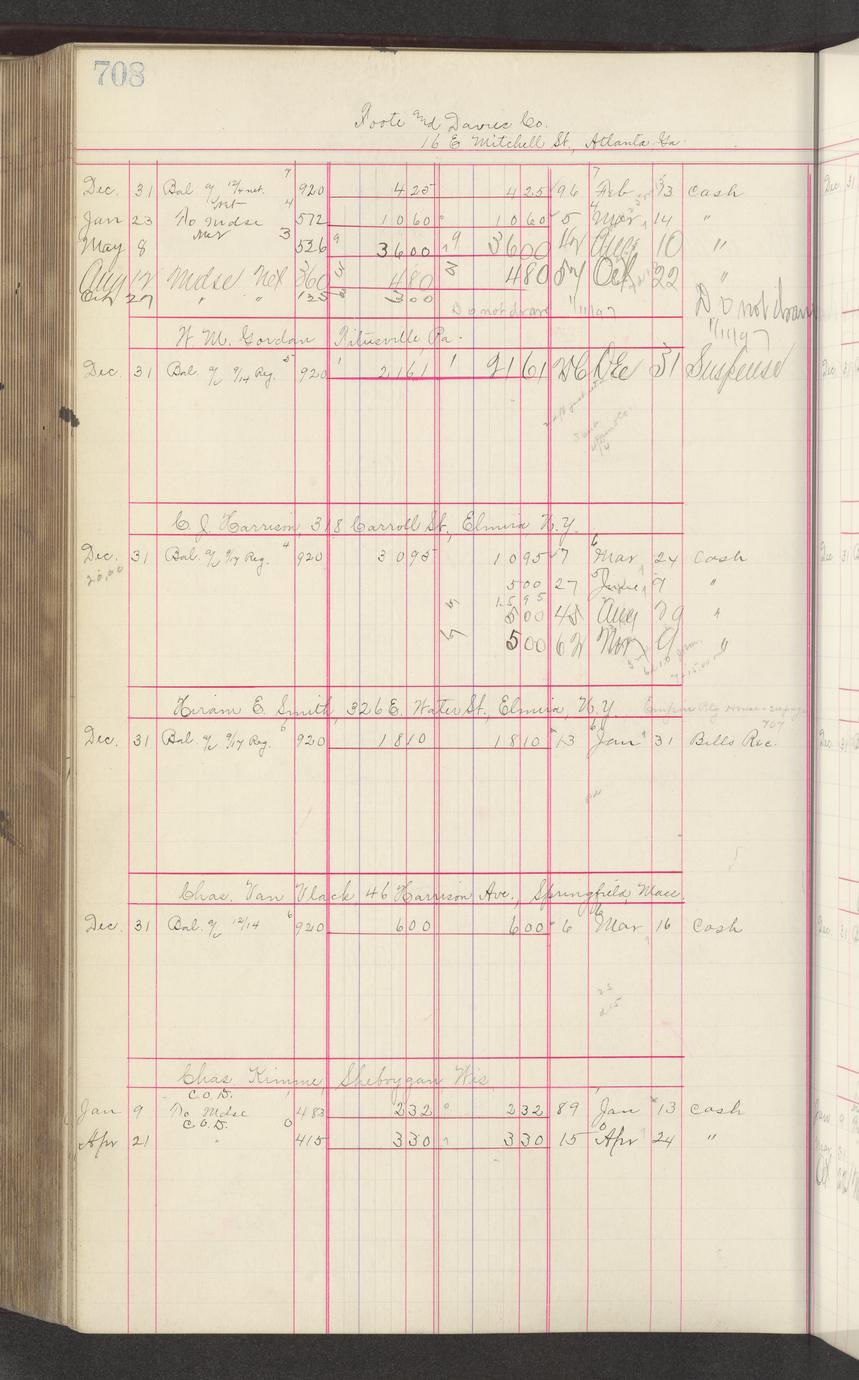 708
Foote and Davies Co.
16 E. Mitchell St., Atlanta Ga.
Dec. 31 Bal. 12/4 net. 7 920 425 425 96 Feb 13 cash
net
Jan 23 To Mdse 4 572 1060 1060 5 Mar 14 "
net
May 8 3 526 3600 3600 Aug 10 "
Aug 12 Mdse Net 360 480 480 57 Oct 22 "
Oct 27 " " 125 300 Do not draw 11/11/97
Do not draw
11/11/97
W. M. Gordan Titusville, Pa.
Dec. 31 Bal. 9/14 Reg. 5 920 2161 2161 Dec 31 Suspense
C. J. Harrison, 318 Carroll St., Elmira N.Y.
Dec. 31 Bal. 9/17 Reg. 4 920 3095 1095 7 Mar 24 Cash
20,00 500 27 June 9 "
1595
500 45 Aug 29 "
500 62 Nov 9 "
Hiram E. Smith, 326 E. Water St., Elmira, N.Y.
707
Dec. 31 Bal. 9/17 Reg. 6 920 1810 1810 13 Jan 31 Bills Rec.
Chas. Van Vlack 46 Harrison Ave., Springfield, Mass.
Dec. 31 Bal. 12/14 6 920 600 600 6 Mar 16 Cash
Chas. Kimme, Sheboygan Wis
C.O.D.
Jan 9 To Mdse 483 232 232 89 Jan 13 Cash
C.O.D.
Apr 21 " 0 415 330 330 15 Apr 24 "